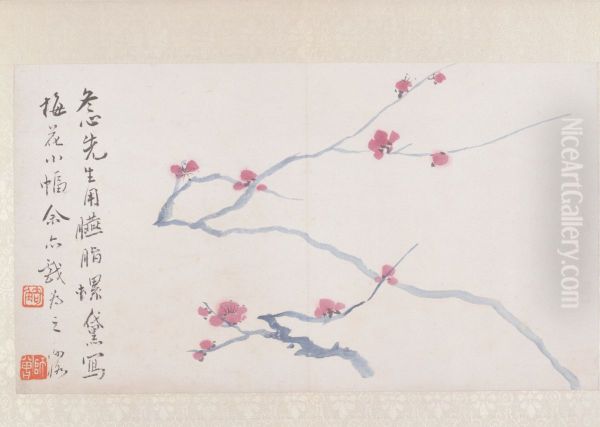 冬心先生用臙脂螺黛寫
梅花小幅余亦戲为之
師曾
NiceArtGallery.com